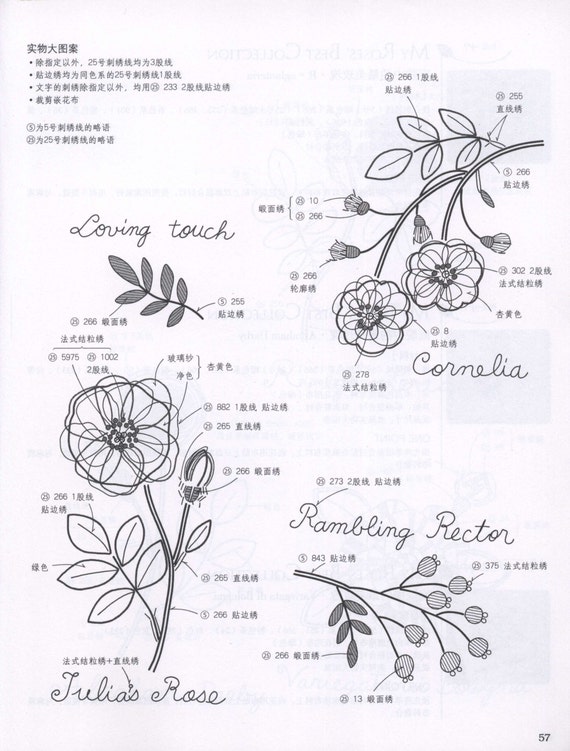 实物大图案
• 除指定以外，25号刺绣线均为3股线
• 贴边绣均为同色系的25号刺绣线1股线
• 文字的刺绣除指定以外，均用㉕ 233 2股线贴边绣
• 裁剪嵌花布
⑤为5号刺绣线的略语
㉕为25号刺绣线的略语
㉕ 266 1股线
贴边绣
㉕ 255
直线绣
⑤ 266
贴边绣
缎面绣
㉕ 10
㉕ 266
㉕ 266
轮廓绣
㉕ 302 2股线
法式结粒绣
杏黄色
㉕ 8
贴边绣
㉕ 278
法式结粒绣
Cornelia
Loving touch
⑤ 255
贴边绣
㉕ 266 缎面绣
法式结粒绣
㉕ 5975 ㉕ 1002
2股线
玻璃纱
净色
杏黄色
㉕ 882 1股线 贴边绣
㉕ 265 直线绣
㉕ 266 缎面绣
㉕ 266 1股线
贴边绣
绿色
㉕ 265 直线绣
⑤ 266 贴边绣
法式结粒绣+直线绣
Julia's Rose
㉕ 273 2股线 贴边绣
Rambling Rector
⑤ 843 贴边绣
㉕ 375 法式结粒绣
㉕ 266 缎面绣
㉕ 13 缎面绣
57